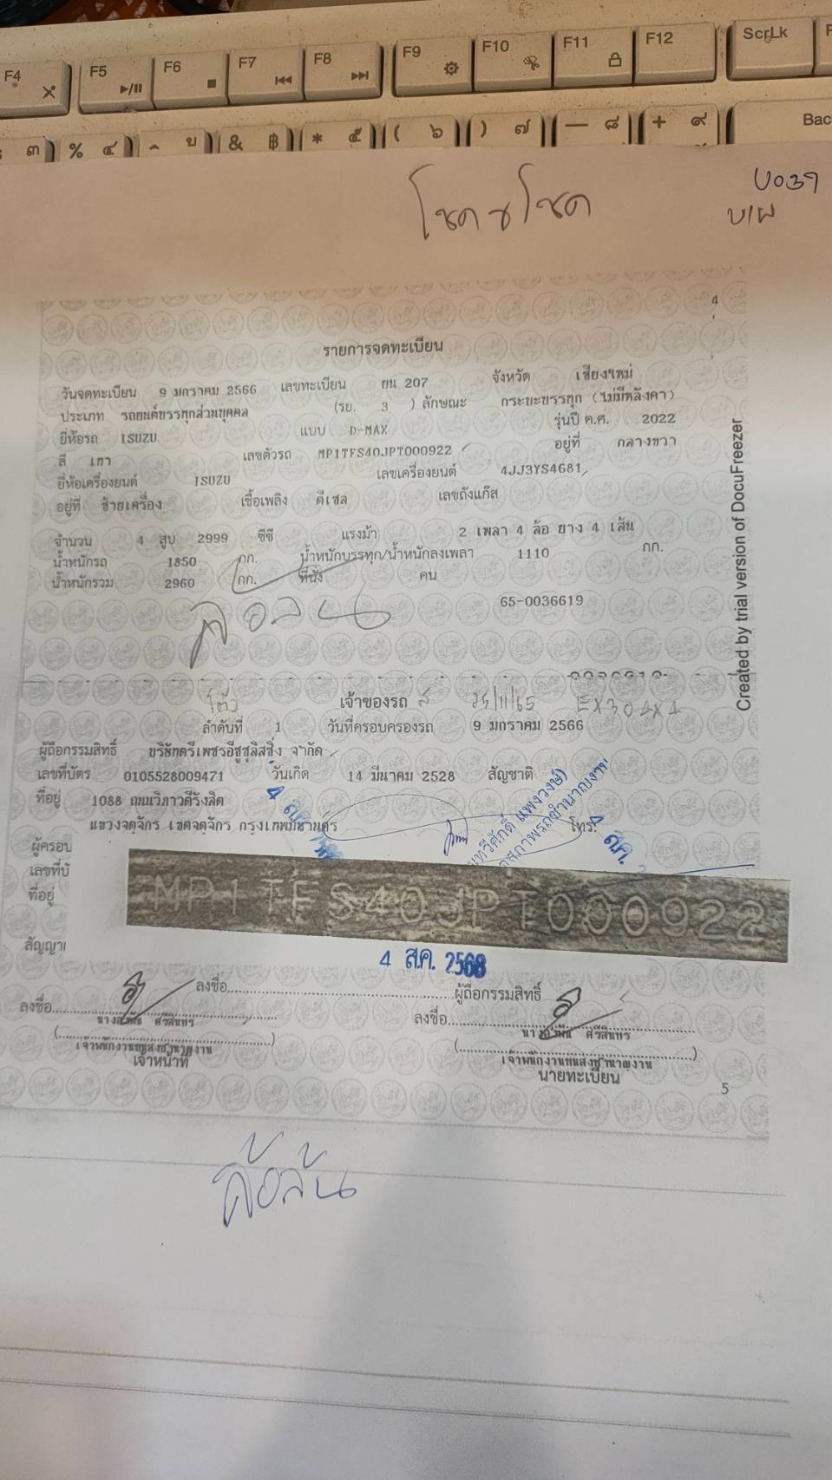 F4 F5 F6 F7 F8 F9 F10 F11 F12 ScrLk
๓ % ๔ บ & ฿ * ๕ ( ๖ ) ๗ — ๘ + ๙ Bac
โชค ๆ โชค
บ/ผ
4
รายการจดทะเบียน
วันจดทะเบียน 9 มกราคม 2566 เลขทะเบียน ยน 207 จังหวัด เชียงใหม่
ประเภท รถยนต์บรรทุกส่วนบุคคล (รย. 3 ) ลักษณะ กระบะบรรทุก (ไม่มีหลังคา)
ยี่ห้อรถ ISUZU แบบ D-MAX รุ่นปี ค.ศ. 2022
สี เทา เลขตัวรถ MP1TFS40JPT000922 อยู่ที่ กลางขวา
ยี่ห้อเครื่องยนต์ ISUZU เลขเครื่องยนต์ 4JJ3YS4681
อยู่ที่ ซ้ายเครื่อง เชื้อเพลิง ดีเซล เลขถังแก๊ส
จำนวน 4 สูบ 2999 ซีซี แรงม้า 2 เพลา 4 ล้อ ยาง 4 เส้น
น้ำหนักรถ 1850 กก. น้ำหนักบรรทุก/น้ำหนักลงเพลา 1110 กก.
น้ำหนักรวม 2960 กก. ที่นั่ง คน
65-0036619
Created by trial version of DocuFreezer
เจ้าของรถ 25/11/65 EX30 4X4
ลำดับที่ 1 วันที่ครอบครองรถ 9 มกราคม 2566
ผู้ถือกรรมสิทธิ์ บริษัทตรีเพชรอีซูซุลิสซิ่ง จำกัด
เลขที่บัตร 0105528009471 วันเกิด 14 มีนาคม 2528 สัญชาติ
ที่อยู่ 1088 ถนนวิภาวดีรังสิต
แขวงจตุจักร เขตจตุจักร กรุงเทพมหานคร โทร.
4 ส.ค.
ผู้ครอบ
เลขที่บั
ที่อยู่
MP1TFS40JPT000922
สัญญา
4 ส.ค. 2568
ลงชื่อ ผู้ถือกรรมสิทธิ์
ลงชื่อ ลงชื่อ
ศรีสินทร ศรีสินทร
เจ้าพนักงานขนส่งชำนาญงาน เจ้าพนักงานขนส่งชำนาญงาน
เจ้าหน้าที่ นายทะเบียน
5